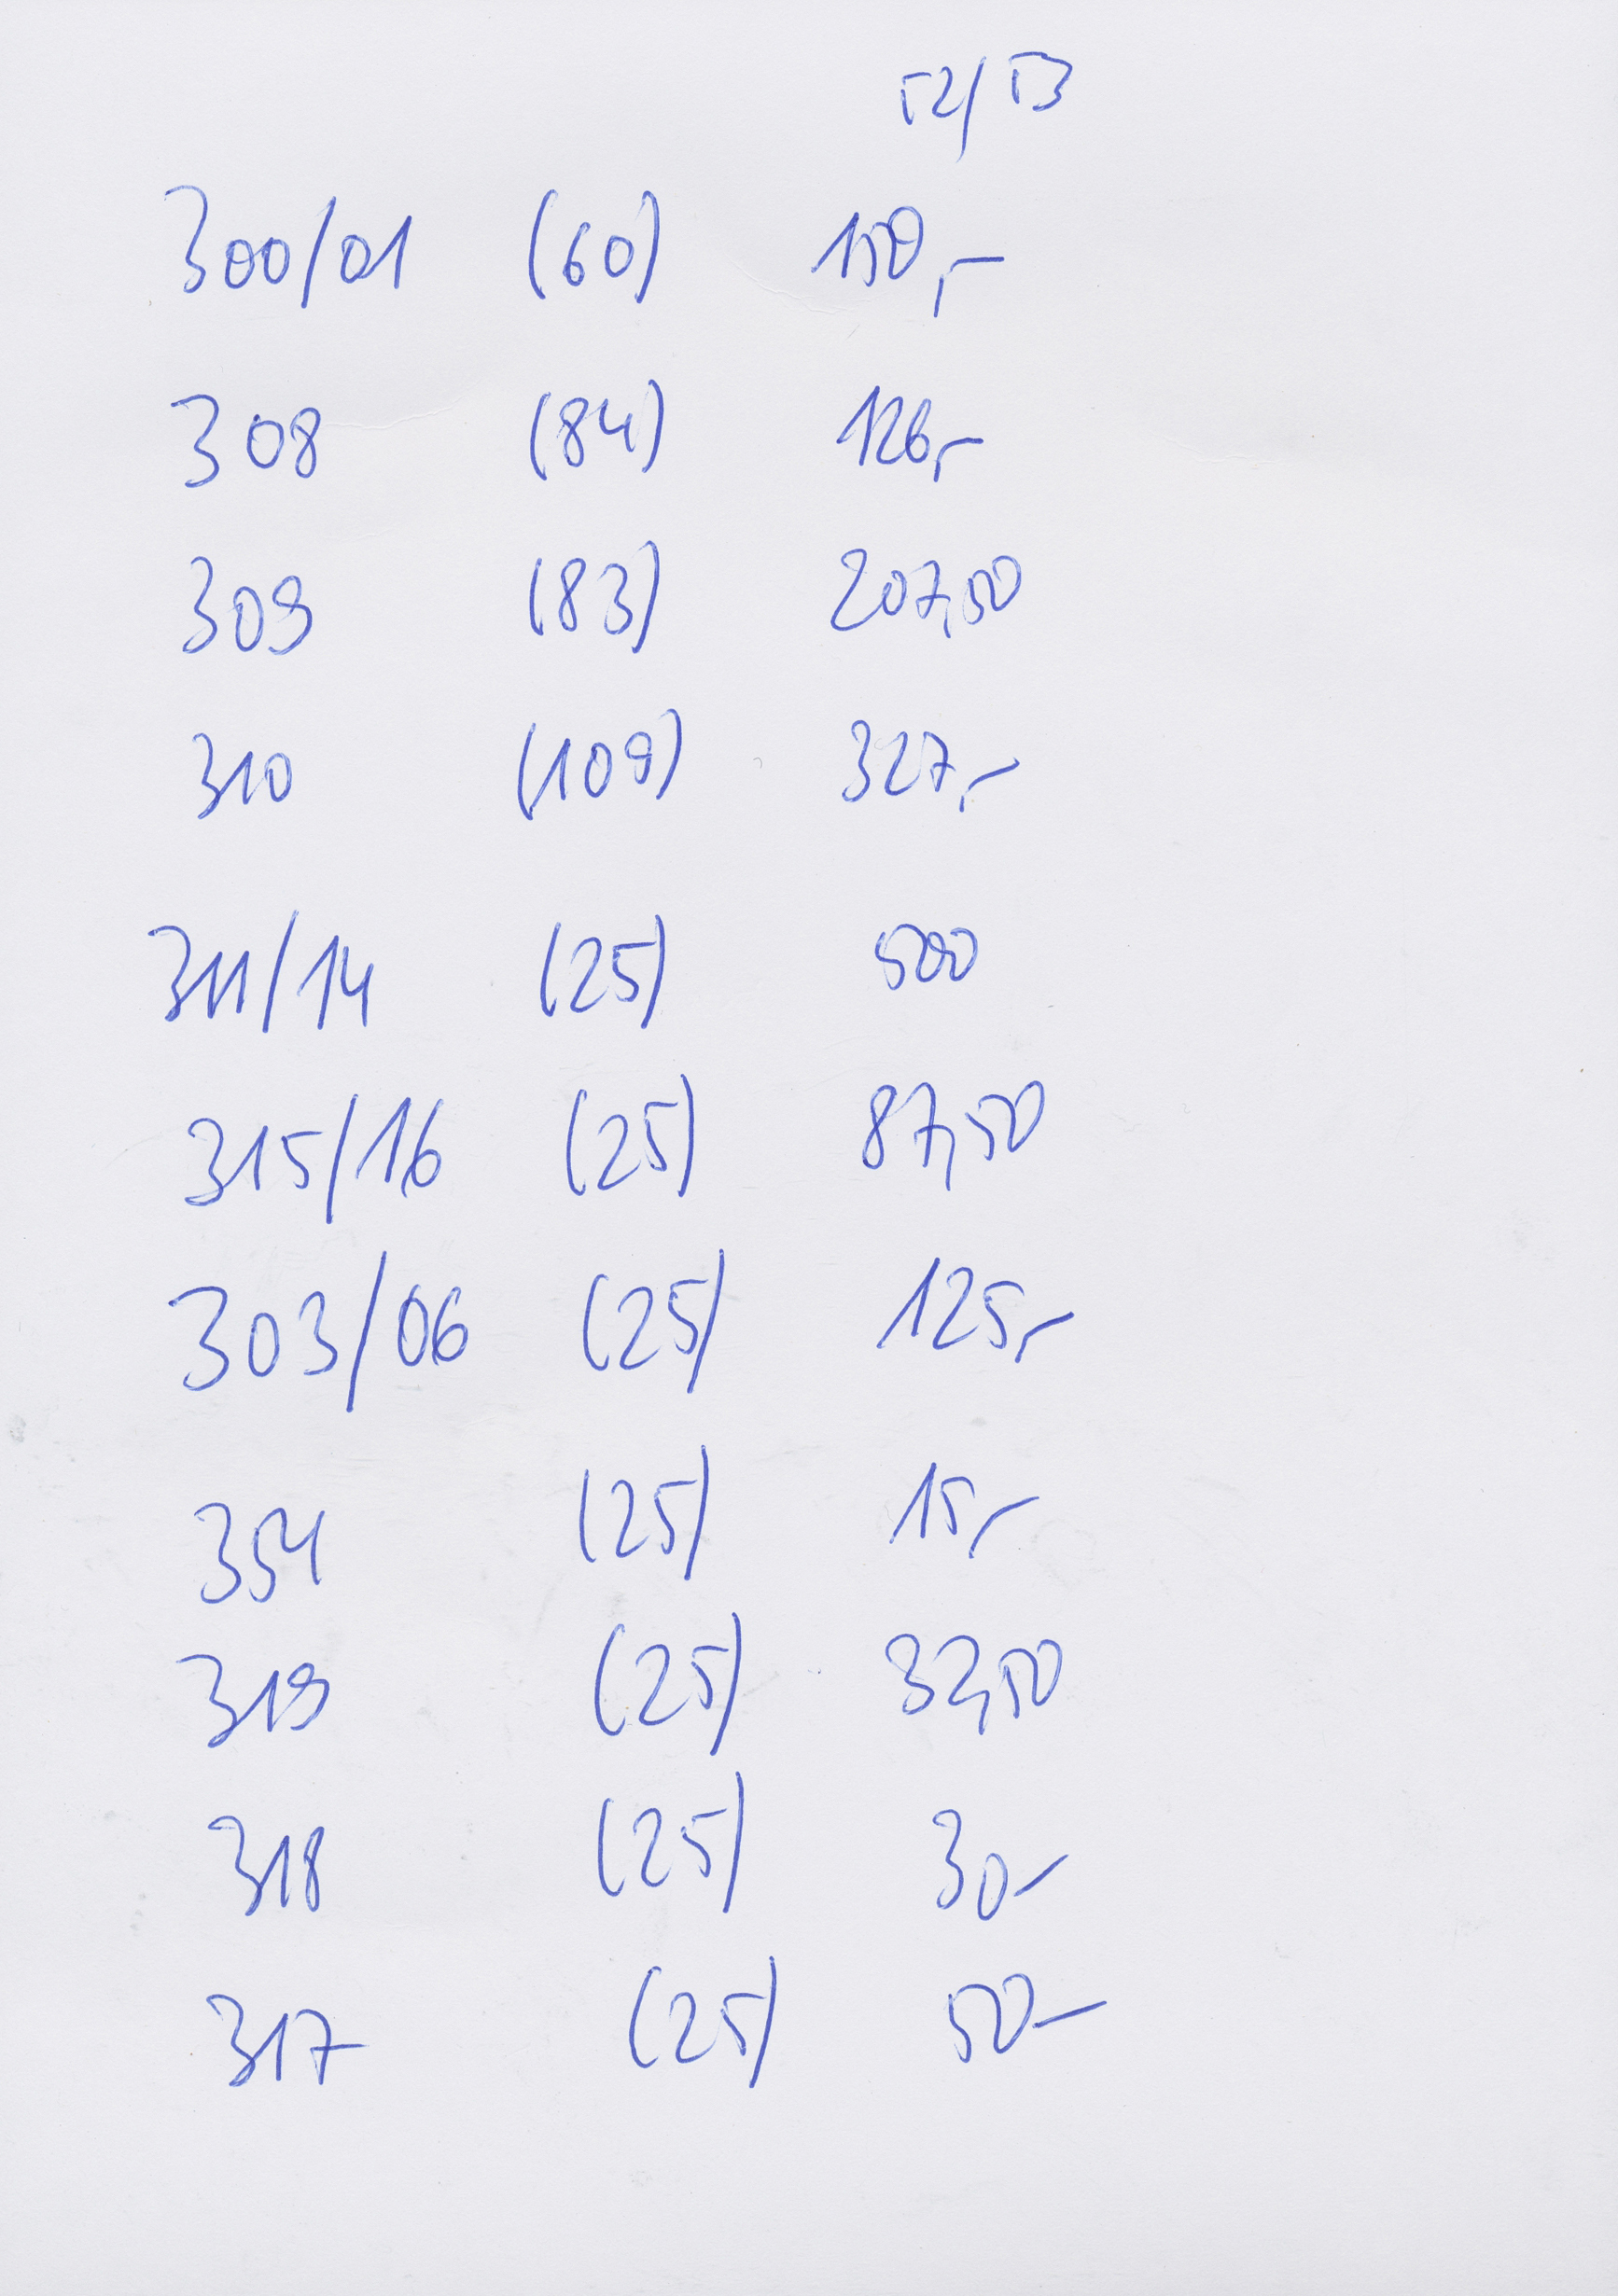 52/53
300/01 (60) 150,-
308 (84) 126,-
309 (83) 207,50
310 (109) 327,-
311/14 (25) 500
315/16 (25) 87,50
303/06 (25) 125,-
354 (25) 15,-
319 (25) 32,50
318 (25) 30-
317 (25) 50-